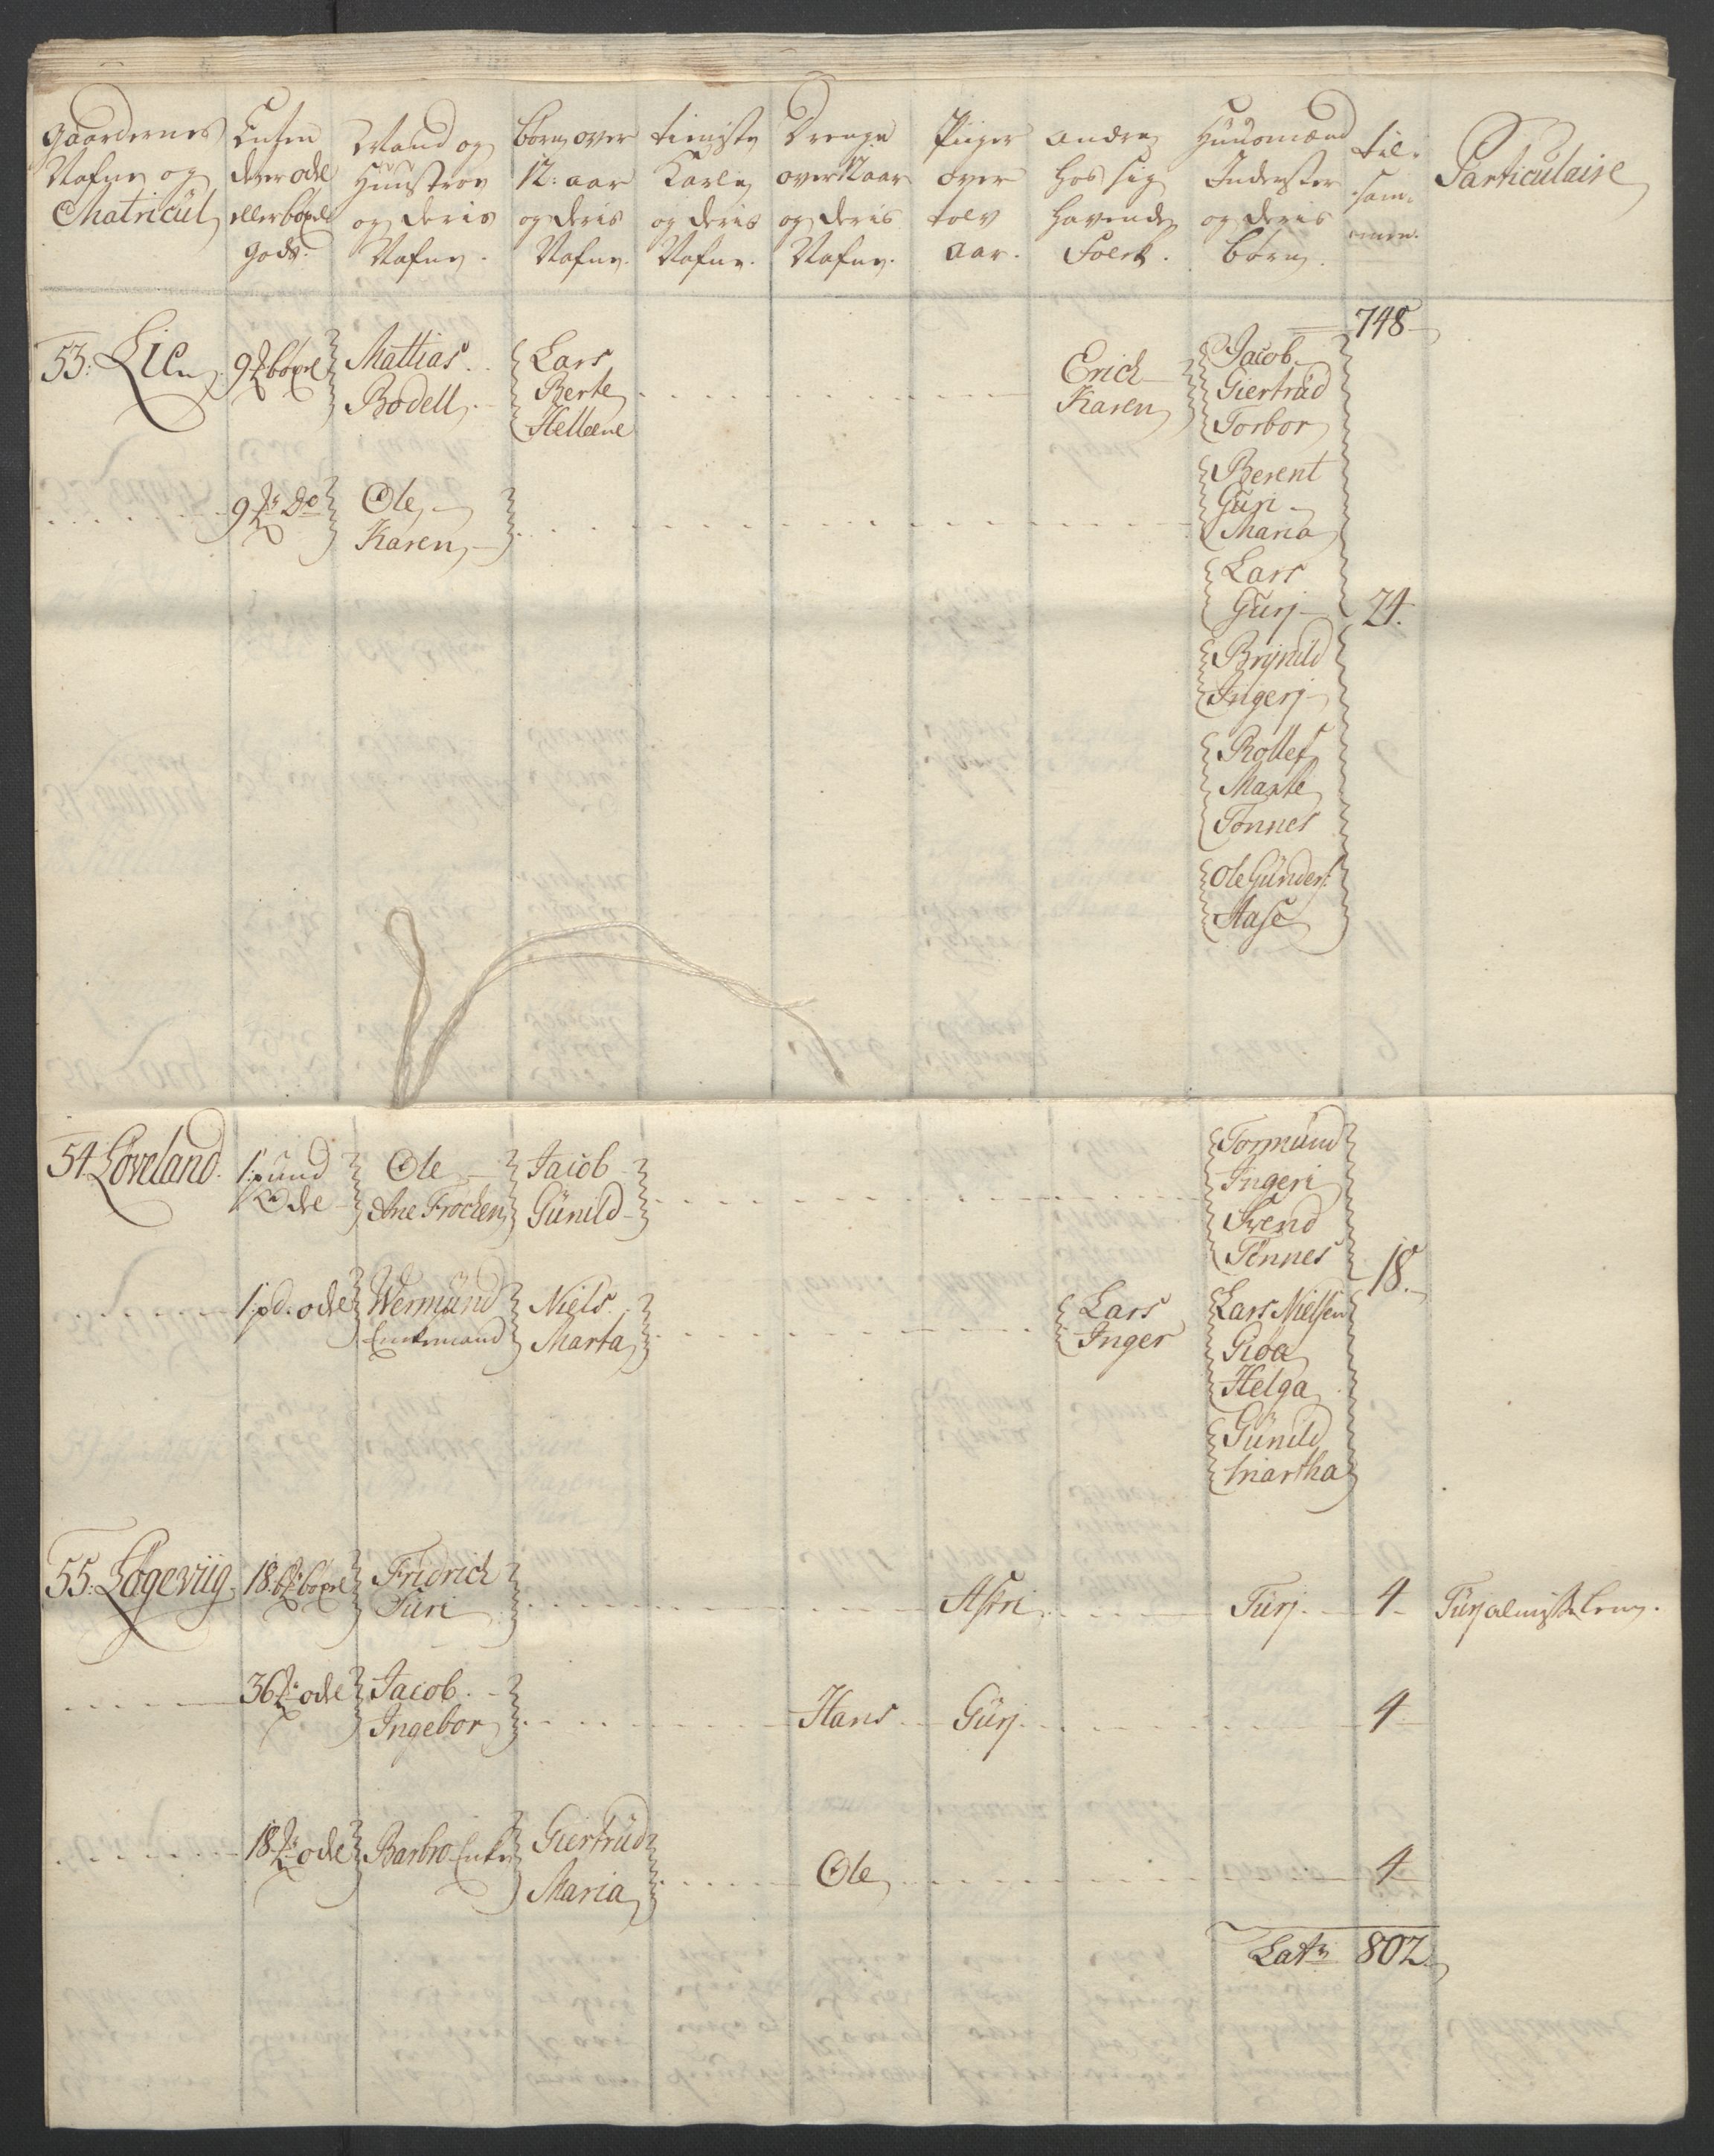 Gaardernes Nafne og Matricul
Enten de er odel eller boxel gods.
Mand og Huustroe og deris Nafne.
børn over 12: aar og deris Nafne.
tieniste Karle og deris Nafne.
Drenge over 12 aar og deris Nafne.
Piiger over tolv aar.
andre hos sig havende Folck.
Huusmænd Inderster og deris børn.
til- sam- men.
Particulaire
748
53: Lie
9 boxel
Mattias
Bodell
Lars
Berte
Helleene
Erich
Karen
Jacob
Giertrud
Torbor
9 Do
Ole
Karen
Berent
Guri
Maria
Lars
Gurj
24.
Brynild
Ingerj
Rollef
Marte
Tønnes
Ole Gunders:
Aase
54 Løveland.
1: pund Odel
Ole
Ane Frochen
Jacob
Gunild
Tormund
Ingeri
Svend
Tønnes
18.
1: pd. odel
Wermund
Enkemand
Niels
Marta
Lars
Inger
Lars Nielsen
Gioa
Helga
Gunild
Martha
55: Løgeviig
18. boxel
Fridrich
Siri
Astri
Turj
4
Turj almisse lem.
36 odel
Jacob
Ingebor
Hans
Gurj
4
18 odel
Barbro Enke
Giertrud
Maria
Ole
4
Lat: 802